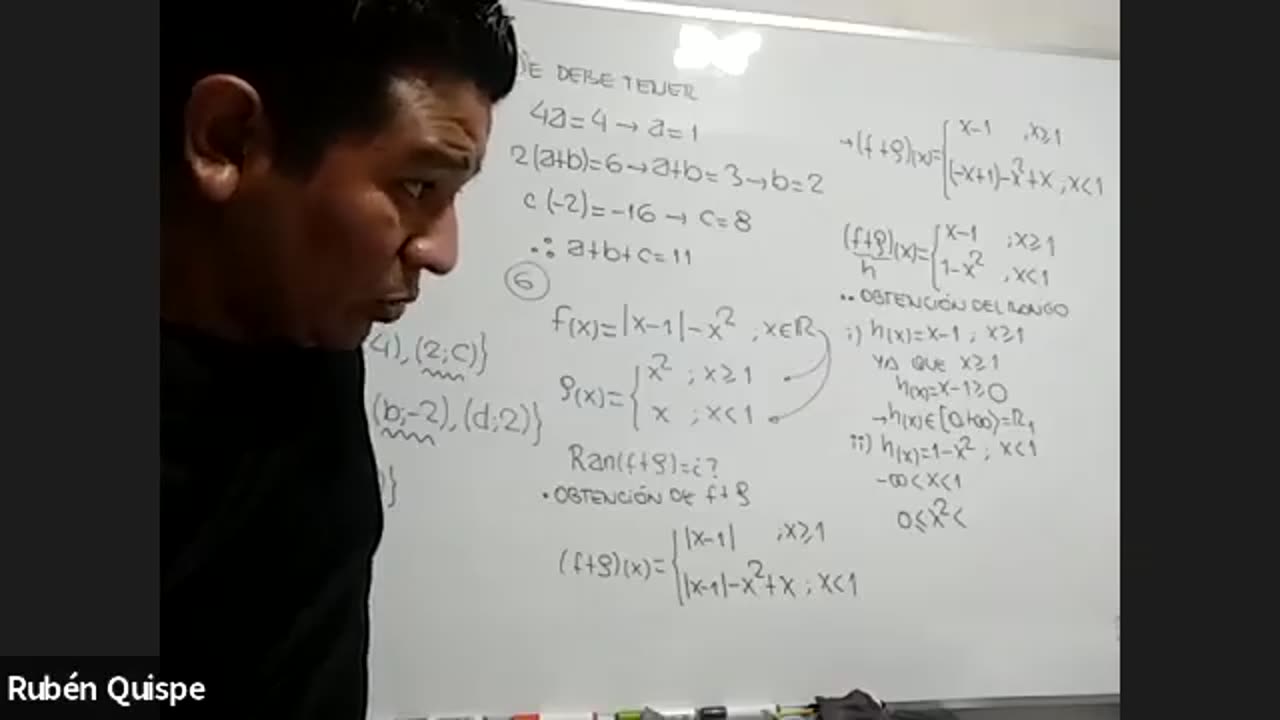 SE DEBE TENER
4a=4→a=1
2(a+b)=6→a+b=3→b=2
c(-2)=-16→c=8
∴ a+b+c=11
4),(2;c)}
(b;-2),(d;2)}
)}
6
f(x)=|x-1|-x² ; x∈ℝ
g(x)={ x² ; x≥1
x ; x<1
Ran(f+g)=¿?
• OBTENCIÓN DE f+g
(f+g)(x)={ |x-1| ; x≥1
|x-1|-x²+x ; x<1
→(f+g)(x)={ x-1 , x≥1
(-x+1)-x²+x ; x<1
(f+g)(x)={ x-1 ; x≥1
h
1-x² , x<1
•• OBTENCIÓN DEL RANGO
i) h(x)=x-1 ; x≥1
YA QUE x≥1
h(x)=x-1≥0
→h(x)∈[0,+∞⟩=R₁
ii) h(x)=1-x² ; x<1
-∞<x<1
0≤x²<
Rubén Quispe